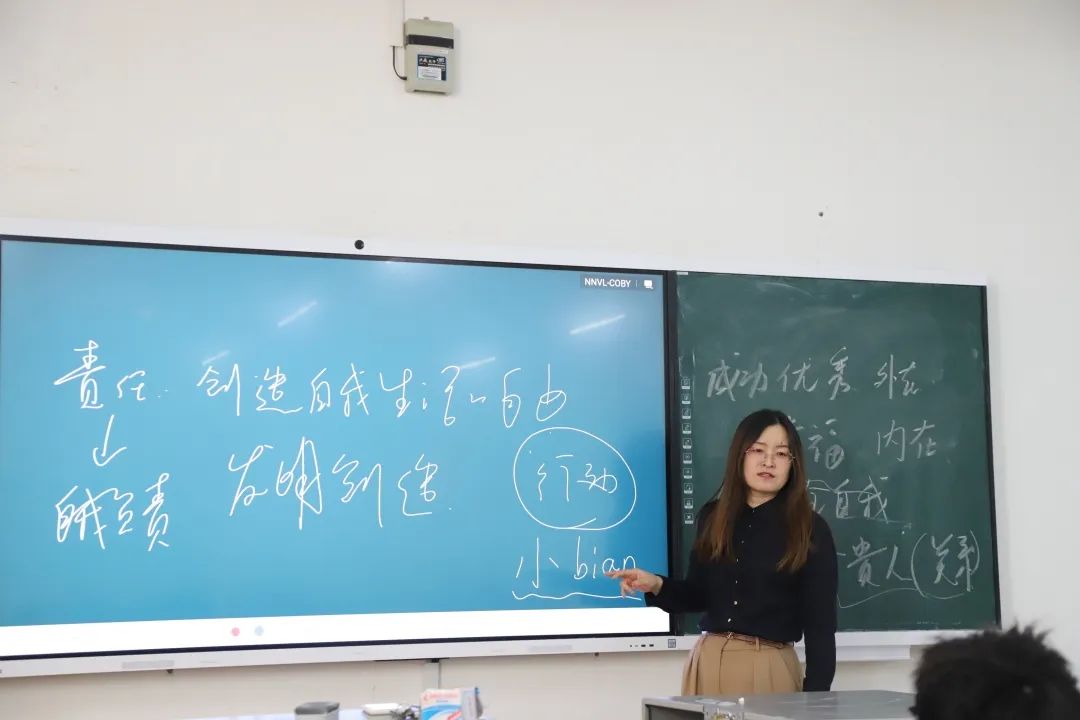 NNVL-COBY
責任. 创造自我生活和自由
↓
自我负责
发明创造.
行动
小bian
成功优秀 外在.
幸福 内在.
自我
貴人(关系)